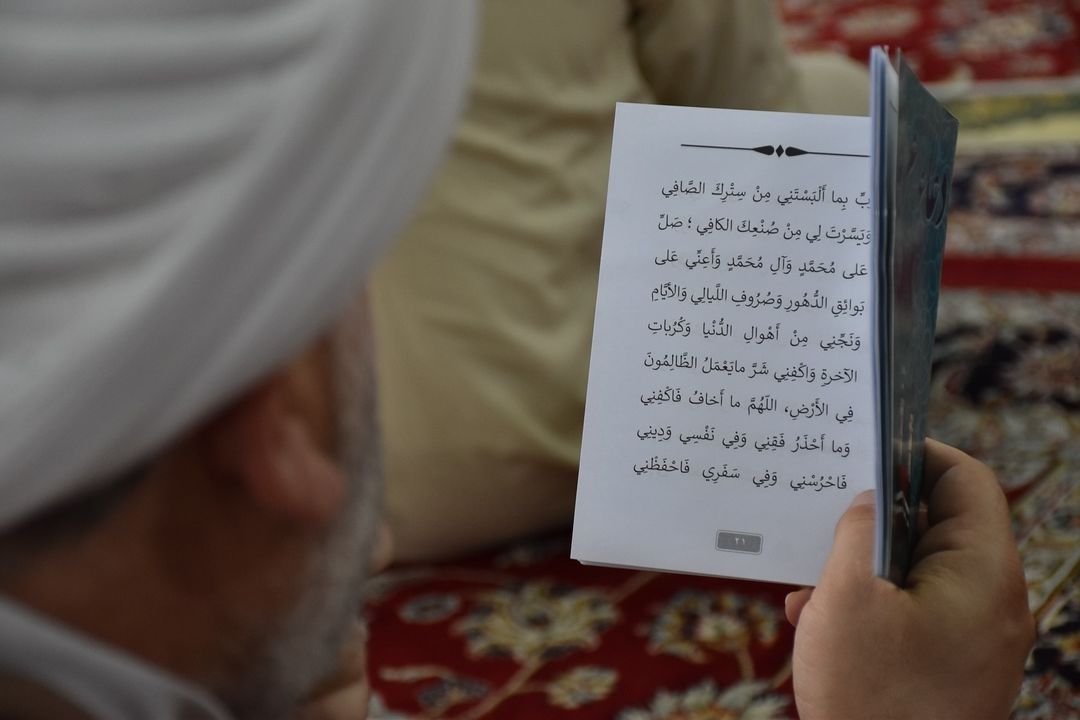 بِما أَلْبَسْتَنِي مِنْ سِتْرِكَ الصَّافِي
وَيَسَّرْتَ لِي مِنْ صُنْعِكَ الكافِي ؛ صَلِّ
عَلى مُحَمَّدٍ وَآلِ مُحَمَّدٍ وَأَعِنِّي عَلى
بَوائِقِ الدُّهُورِ وَصُرُوفِ اللَّيالِي وَالأَيَّامِ
وَنَجِّنِي مِنْ أَهْوالِ الدُّنْيا وَكُرُباتِ
الآخرةِ وَاكْفِنِي شَرَّ مايَعْمَلُ الظَّالِمُونَ
فِي الأَرْضِ، اللّهُمَّ ما أَخافُ فَاكْفِنِي
وَما أَحْذَرُ فَقِنِي وَفِي نَفْسِي وَدِينِي
فَاحْرُسْنِي وَفِي سَفَرِي فَاحْفَظْنِي
٢١